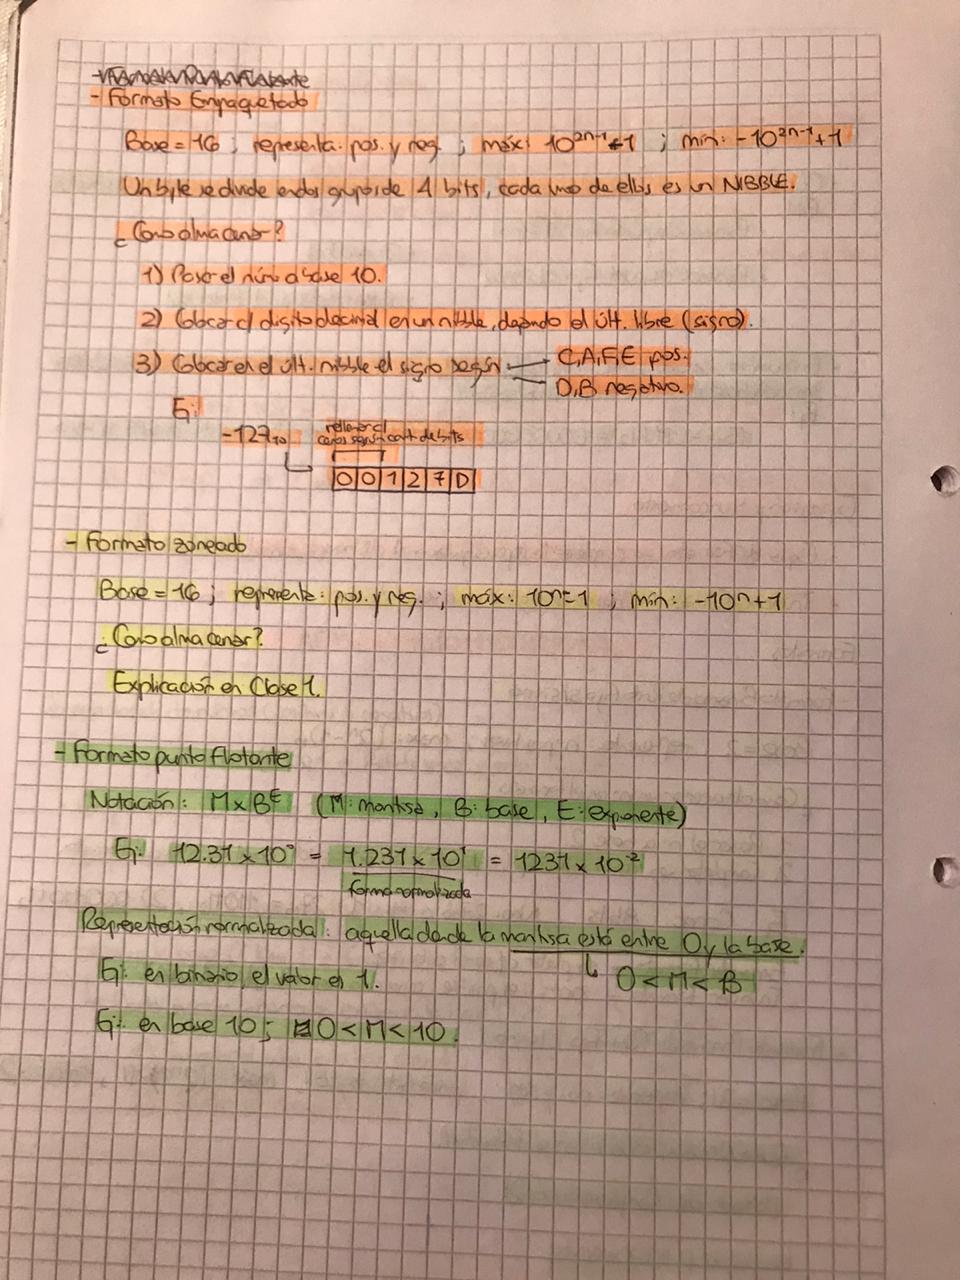 - Formato Empaquetado
Base = 16 ; representa: pos. y neg. ; máx: 10²ⁿ⁻¹-1 ; mín: -10²ⁿ⁻¹+1
Un byte se divide en dos grupos de 4 bits, cada uno de ellos es un NIBBLE.
¿Como almacenar?
1) Pasar el núm a base 10.
2) Colocar c/ dígito decimal en un nibble, dejando el últ. libre (signo).
3) Colocar en el últ. nibble el signo según C,A,F,E pos.
D,B negativo.
Ej:
-127₁₀ rellenar c/
ceros según cant. de bits
0 0 1 2 7 D
- Formato zoneado
Base = 16 ; representa: pos. y neg. ; máx: 10ⁿ-1 ; mín: -10ⁿ+1
¿Como almacenar?
Explicación en Clase 1.
- Formato punto flotante
Notación: M x Bᴱ (M: mantisa, B: base, E: exponente)
Ej: 12.37 x 10⁰ = 1.237 x 10¹ = 1237 x 10⁻²
forma normalizada
Representación normalizada: aquella donde la mantisa está entre 0 y la base.
0 < M < B
Ej: en binario, el valor es 1.
Ej: en base 10; 0 < M < 10.